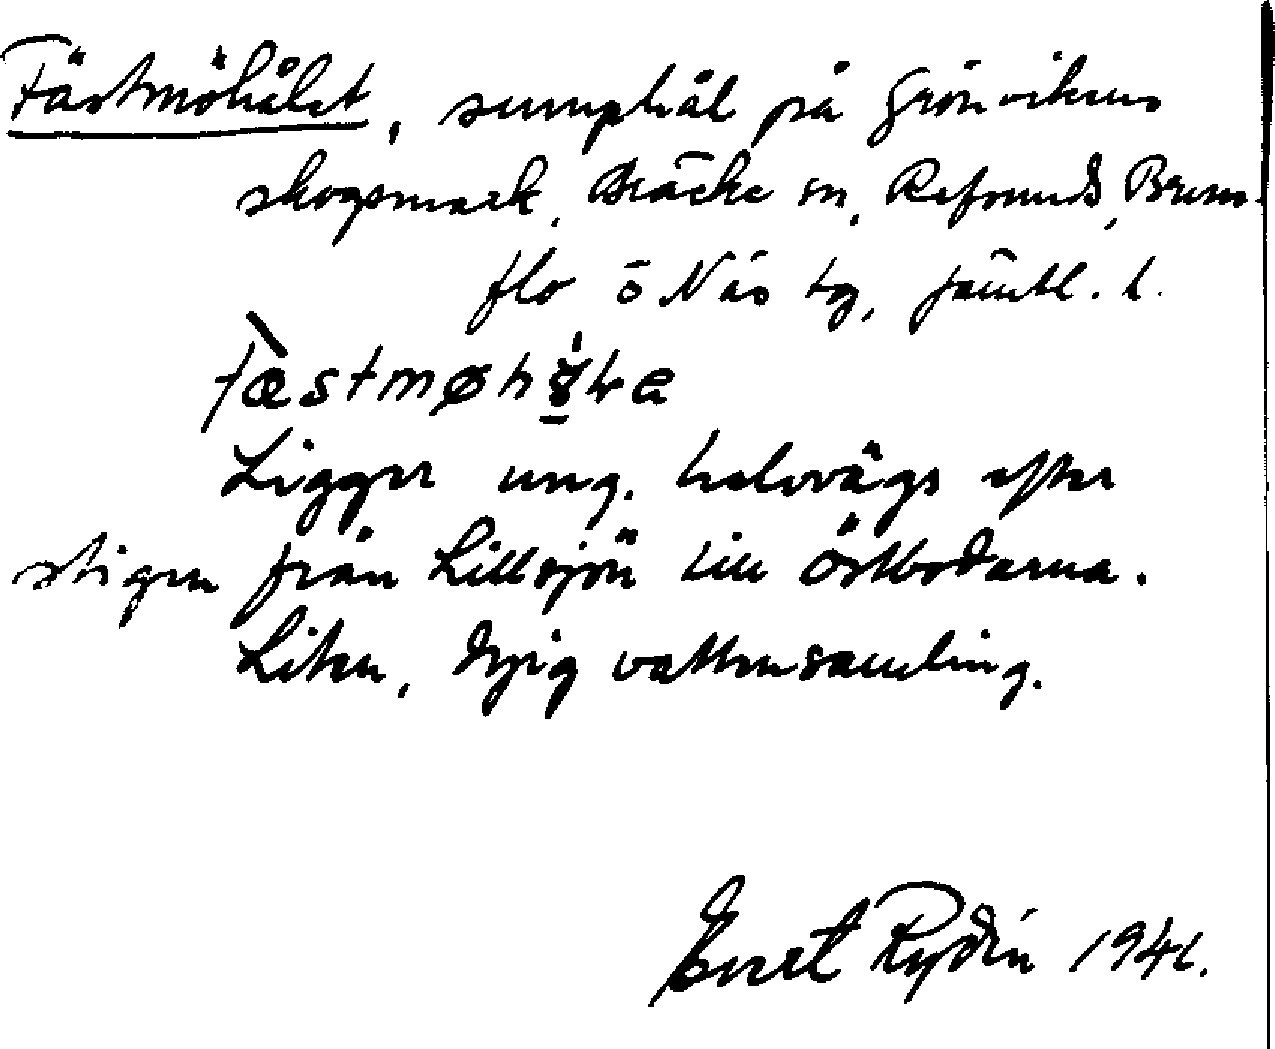 Fästmöhålet, sumphål på Grönvikens
skogsmark, Bräcke sn, Refsunds, Brun-
flo o Näs tg, Jämtl. l.
Ligger ung. halvvägs efter
stigen från Lillsjön till Östbodarna.
Liten, dyig vattensamling.
Evert Rydin 1941.